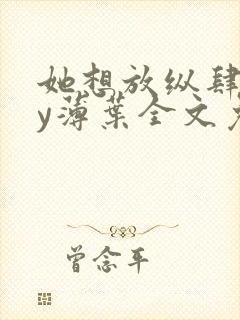 她想放纵肆
y薄葉全文
曾念平